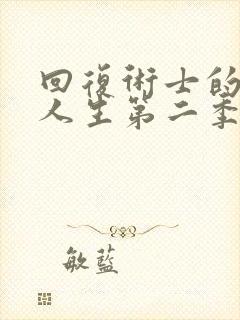 回復術士的
人生第二季
敏藍